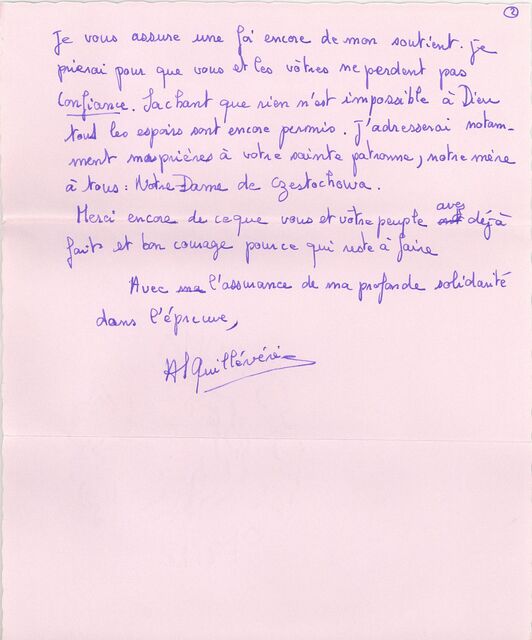 2
Je vous assure une foi encore de mon soutient. Je
prierai pour que vous et les vôtres ne perdent pas
confiance. Sachant que rien n'est impossible à Dieu
tous les espoirs sont encore permis. J'adresserai notam-
ment mes prières à votre sainte patronne, notre mère
à tous : Notre Dame de Czestochowa.
Merci encore de ce que vous et votre peuple avez déjà
faits et bon courage pour ce qui reste à faire
Avec ma l'assurance de ma profonde solidarité
dans l'épreuve,
Quillévéré